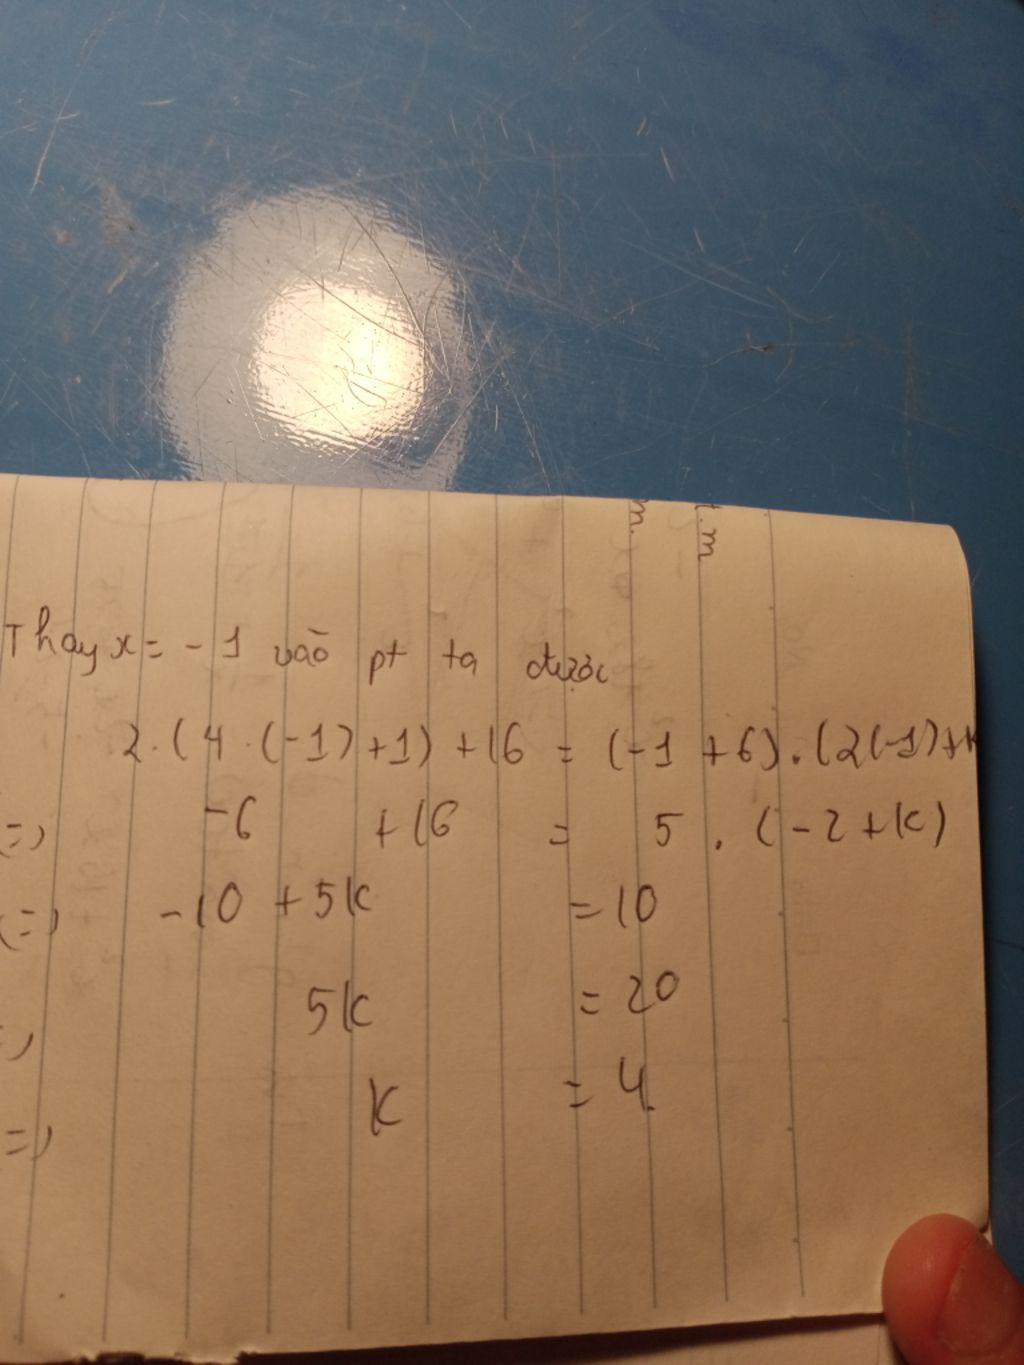 n.
t.m
Thay x = -1 vào pt ta được
2.(4.(-1)+1) +16 = (-1 +6).(2(-1)+k
(=) -6 +16 = 5 . (-2+k)
(=) -10 +5k =10
=) 5k = 20
=) k = 4